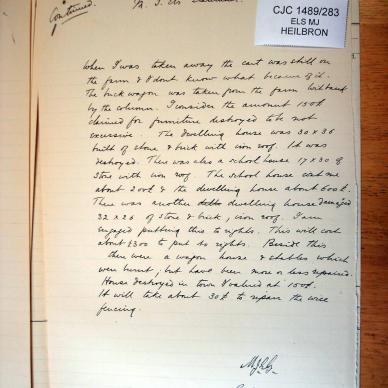 Continued.
M. J. Els
CJC 1489/283
ELS MJ
HEILBRON
When I was taken away the cart was still on
the farm & I dont know what became of it.
The buckwagon was taken from the farm
by the column. I consider the amount 150£
claimed for furniture destroyed to be not
excessive. The dwelling house was 30 x 36
built of stone & brick with iron roof. It was
destroyed. There was also a school house 17 x 30 of
stone with iron roof. The school house cost me
about 200£ & the dwelling house about 600£.
There was another dwelling house damaged
32 x 26 of stone & brick, iron roof. I am
engaged putting this to rights. This will cost
about £300 to put to rights. Beside this
there were a wagon house & stables which
were burnt, but have been more or less repaired.
House destroyed in town I valued at 150£.
It will take about 30£ to repair the wire
fencing.